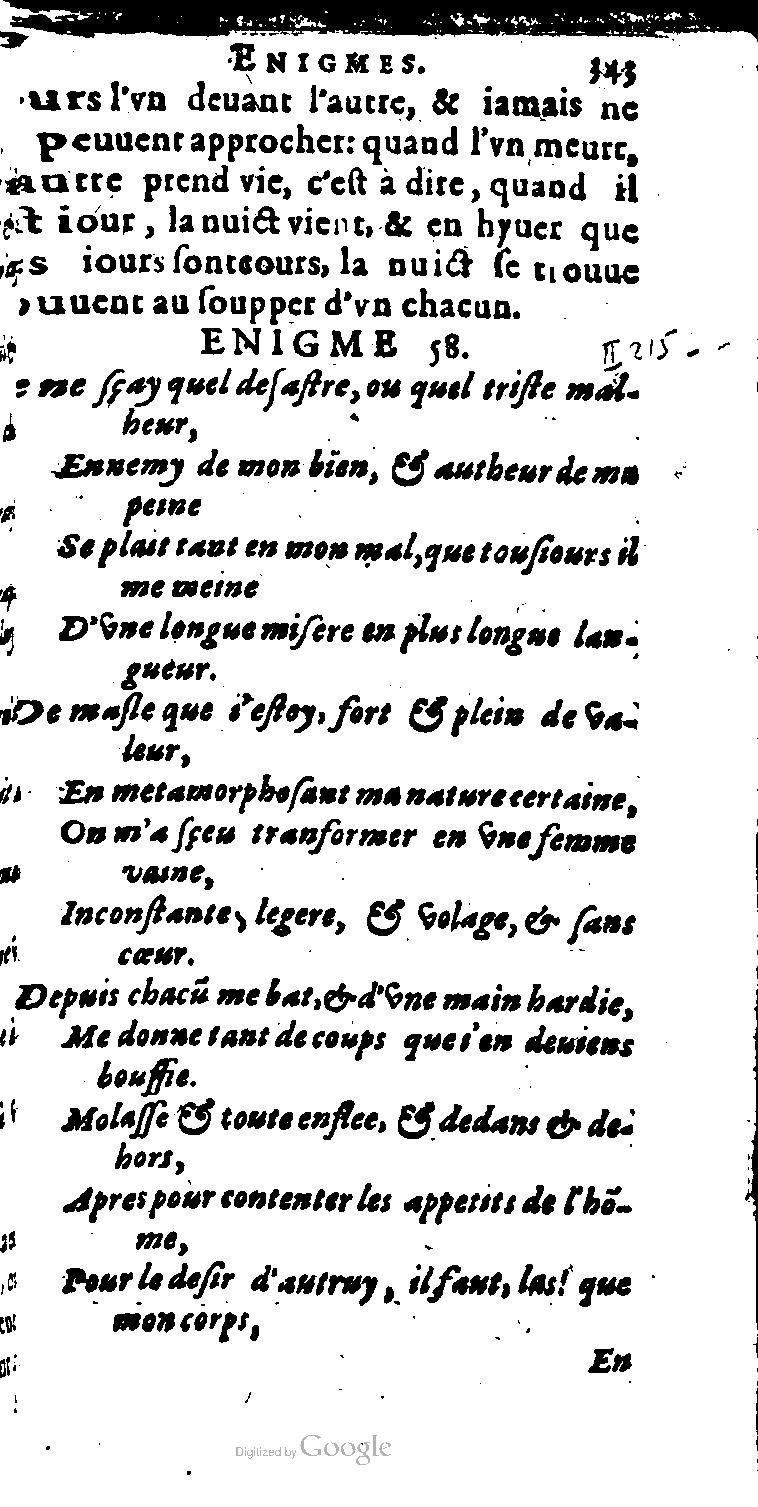 ENIGMES. 343
urs l'vn deuant l'autre, & iamais ne
peuuent approcher: quand l'vn meurt,
autre prend vie, c'eſt à dire, quand il
iour, la nuict vient, & en hyuer que
iours ſont courts, la nuict ſe trouue
ouuent au ſoupper d'vn chacun.
ENIGME 58. II 215
e ne ſçay quel deſaſtre, ou quel triſte mal-
heur,
Ennemy de mon bien, & autheur de ma
peine
Se plait tant en mon mal, que touſiours il
me meine
D'vne longue miſere en plus longue lan-
gueur.
De maſle que i'eſtoy, fort & plein de va-
leur,
En metamorphoſant ma nature certaine,
On m'a ſçeu tranſformer en vne femme
vaine,
Inconſtante, legere, & volage, & ſans
cœur.
Depuis chacũ me bat, & d'vne main hardie,
Me donne tant de coups que i'en deuiens
bouffie.
Molaſſe & toute enflee, & dedans & de-
hors,
Apres pour contenter les appetits de l'hõ-
me,
Pour le deſir d'autruy, il faut, las! que
mon corps,
En
Digitized by Google